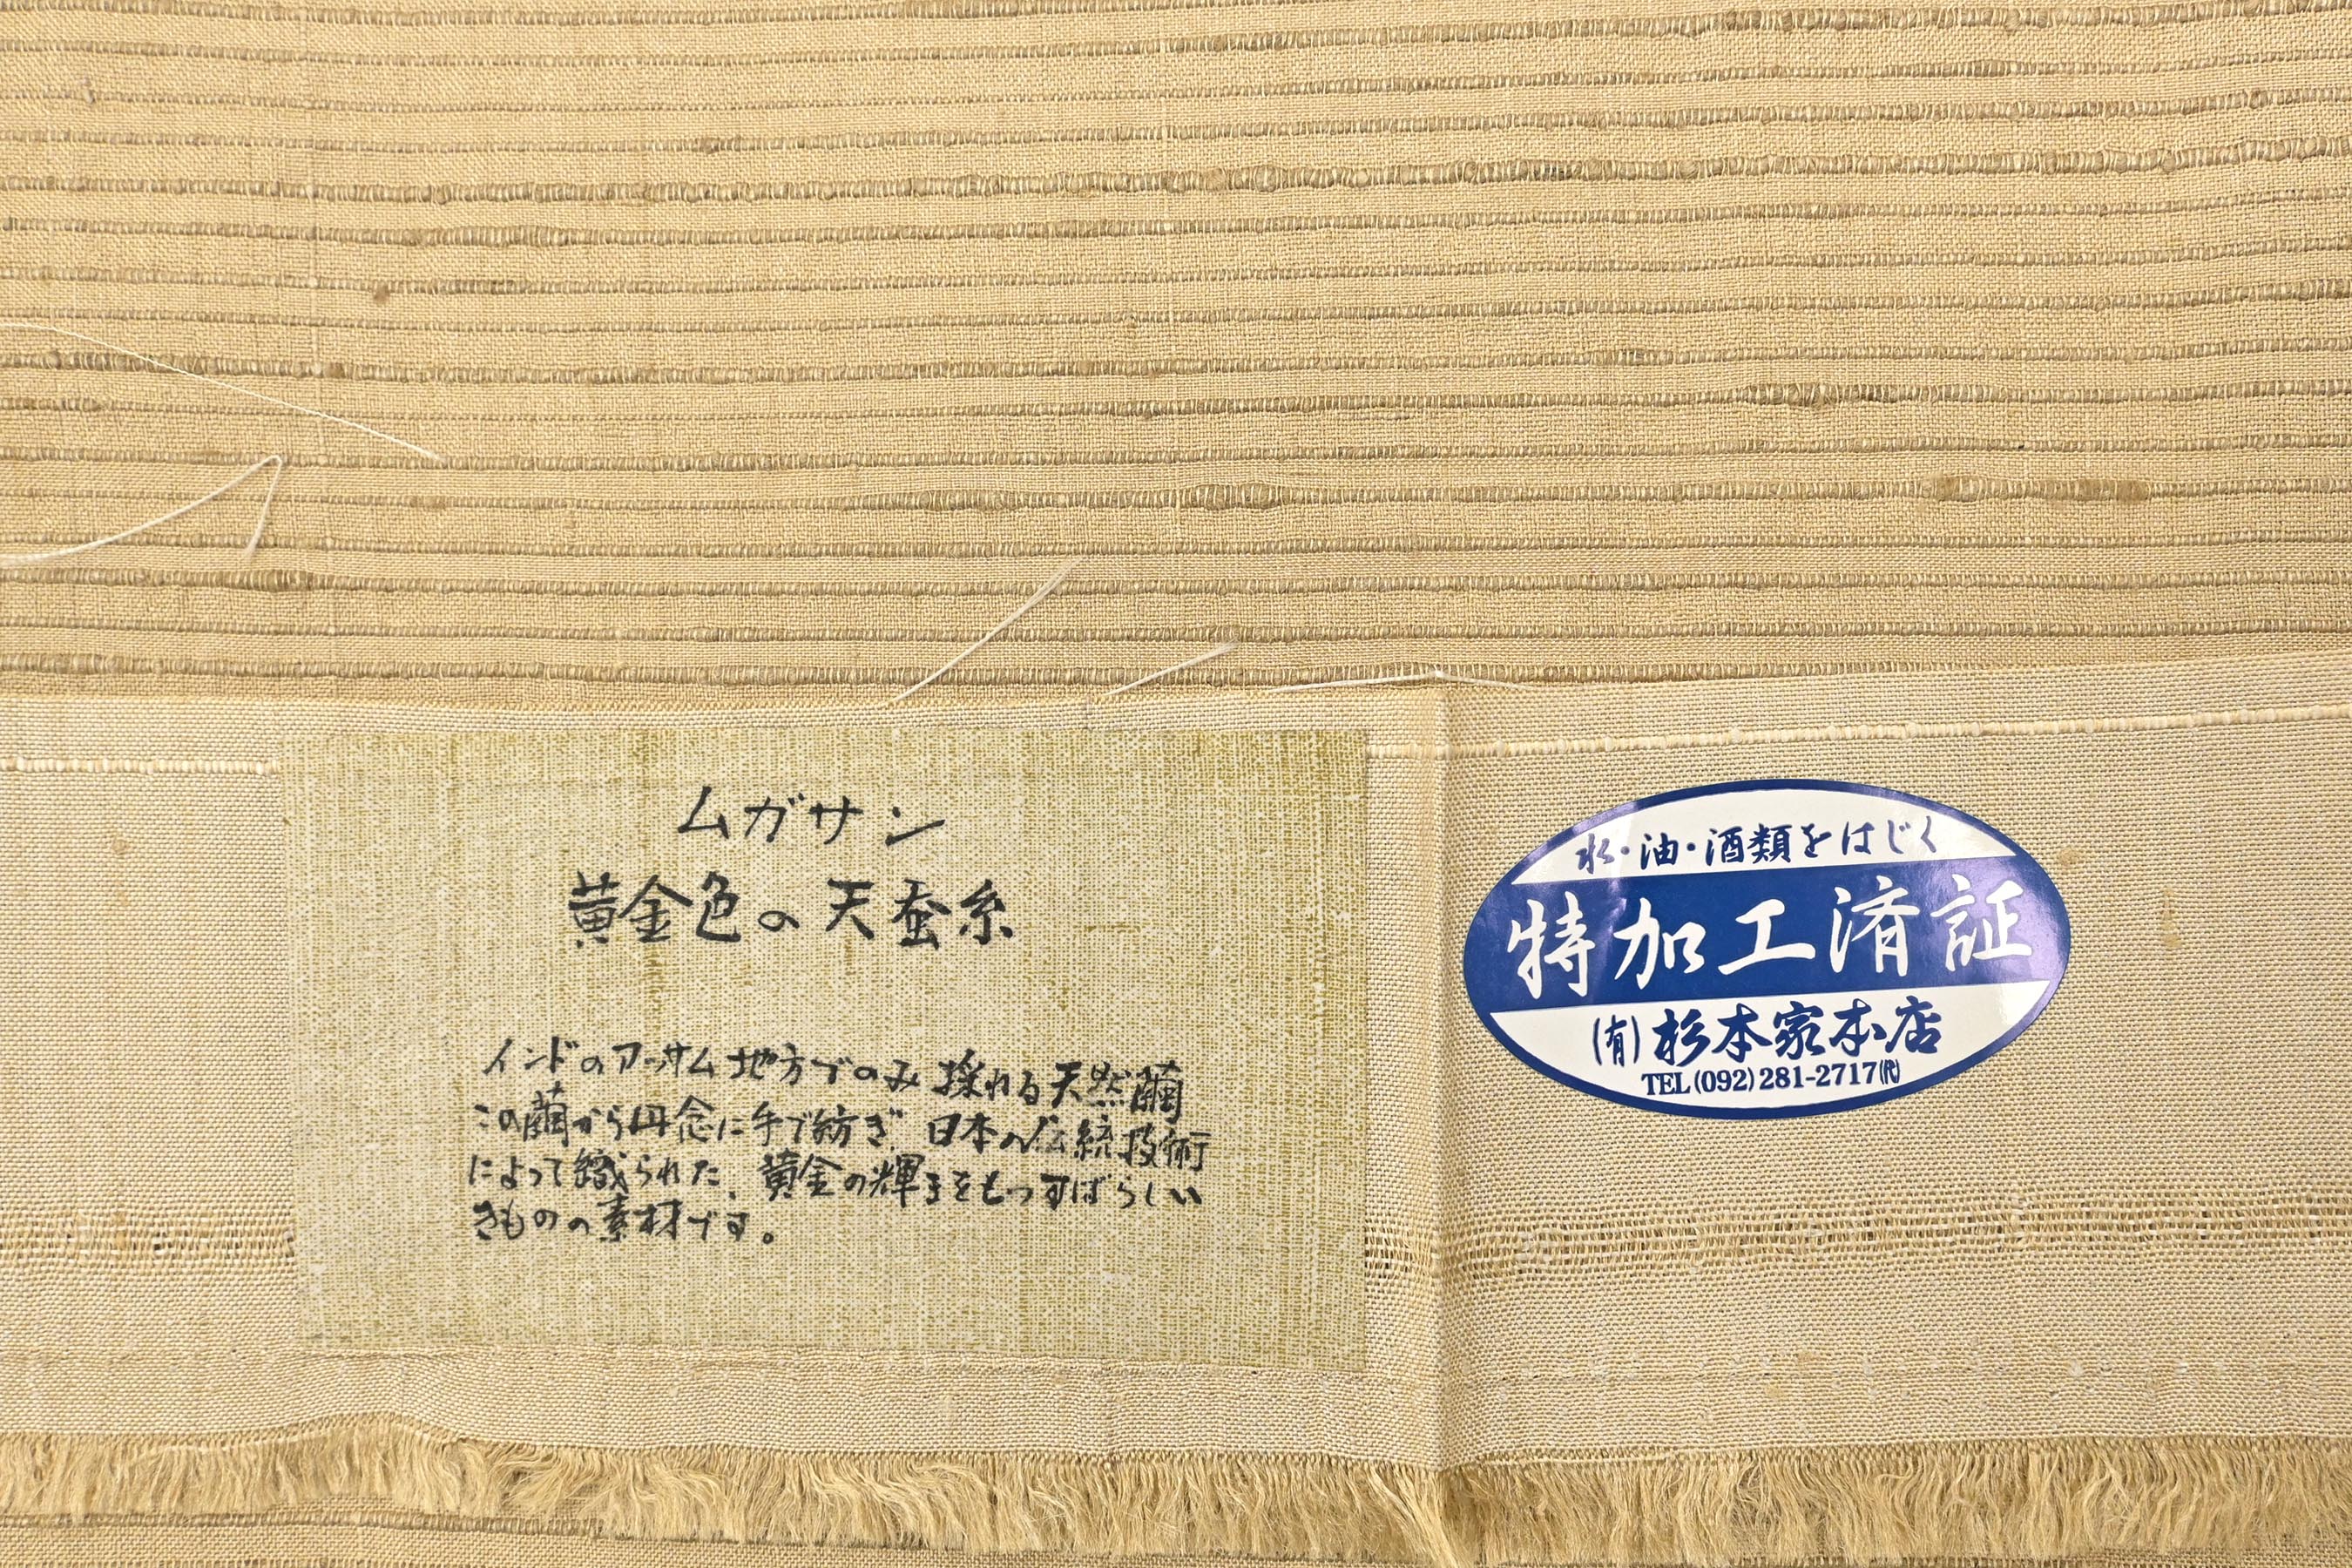 ムガサン
黄金色の天蚕糸
インドのアッサム地方でのみ採れる天然繭
この繭から丹念に手で紡ぎ 日本の伝統技術
によって織られた、黄金の輝きをもつすばらしい
きものの素材です。
水・油・酒類をはじく
特加工済証
(有)杉本家本店
TEL(092)281-2717(代)